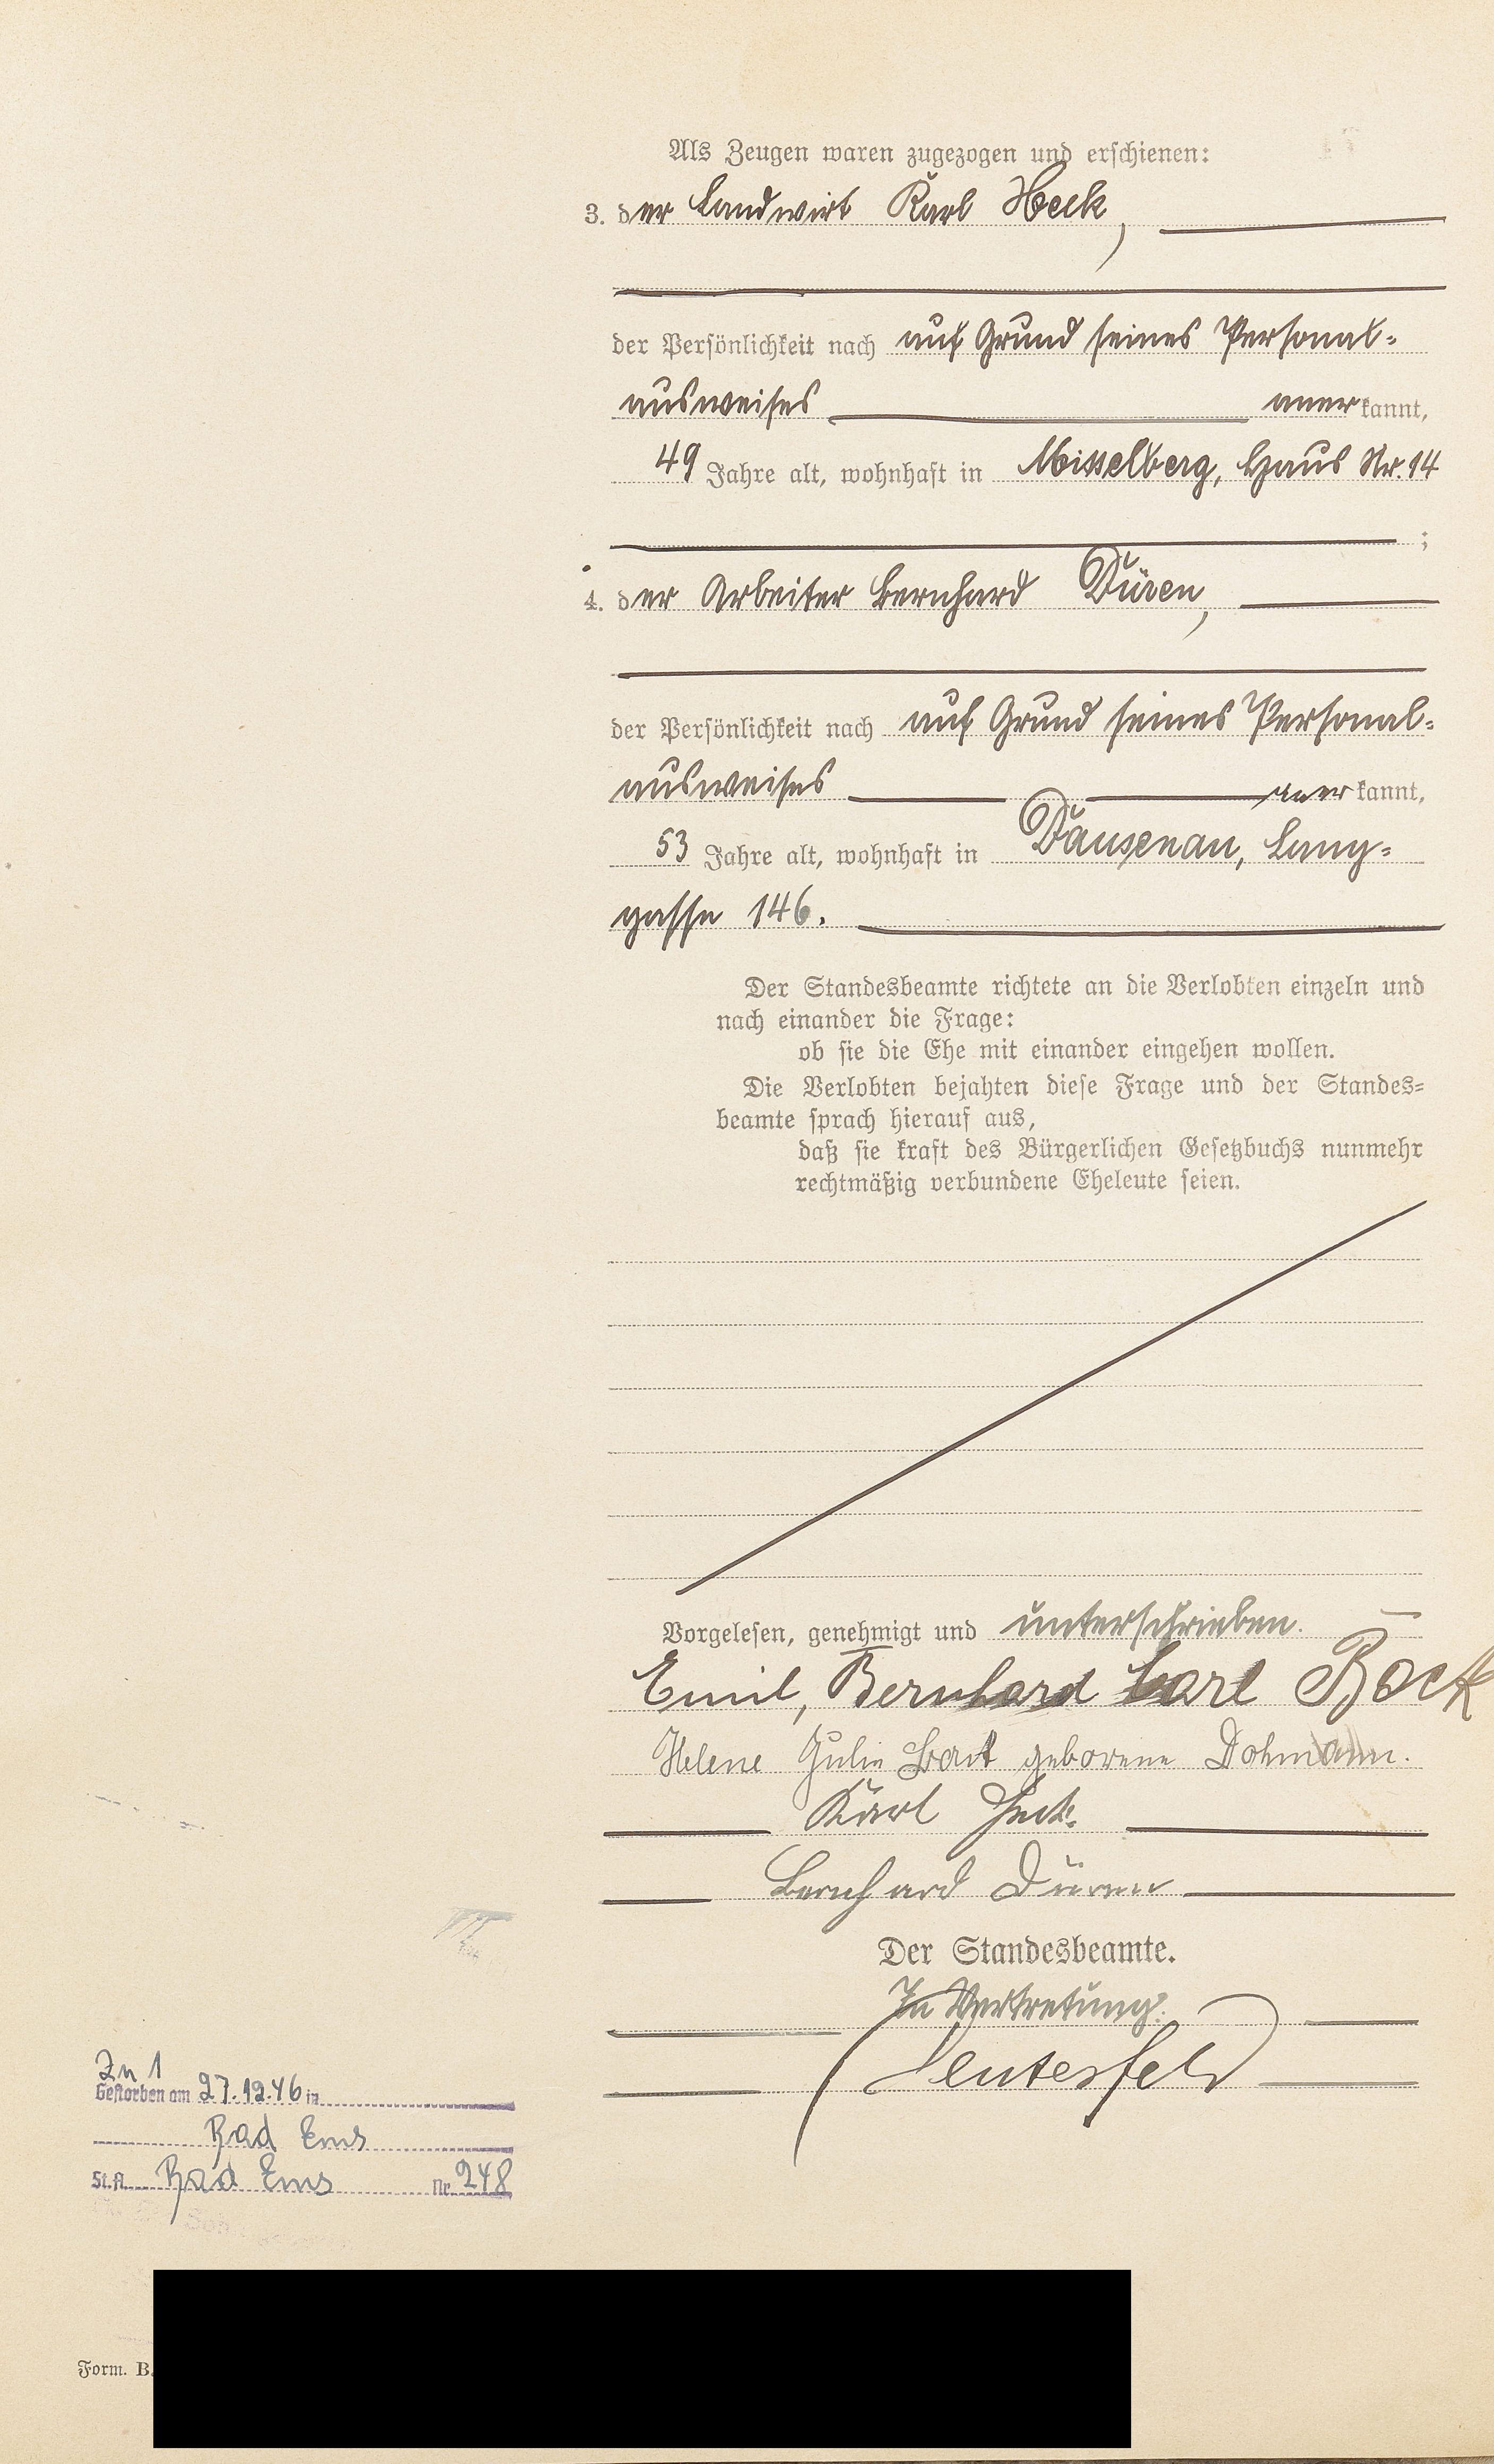 Als Zeugen waren zugezogen und erschienen:
3. der Landwirt Karl Heck,
der Persönlichkeit nach auf Grund seines Personal-
ausweises anerkannt,
49 Jahre alt, wohnhaft in Misselberg, Haus Nr. 14
;
4. der Arbeiter Bernhard Düren,
der Persönlichkeit nach auf Grund seines Personal-
ausweises anerkannt,
53 Jahre alt, wohnhaft in Dausenau, Lang-
gasse 146.
Der Standesbeamte richtete an die Verlobten einzeln und
nach einander die Frage:
ob sie die Ehe mit einander eingehen wollen.
Die Verlobten bejahten diese Frage und der Standes-
beamte sprach hierauf aus,
daß sie kraft des Bürgerlichen Gesetzbuchs nunmehr
rechtmäßig verbundene Eheleute seien.
Vorgelesen, genehmigt und unterschrieben.
Emil, Bernhard Carl Bock
Helene Julie geborene Dohmann.
Karl Heck
Bernhard Düren
Der Standesbeamte.
In Vertretung:
Leutesfeld
Zu 1
Gestorben am 27.12.46 in
Bad Ems
St.A. Bad Ems Nr. 248
Form. B.